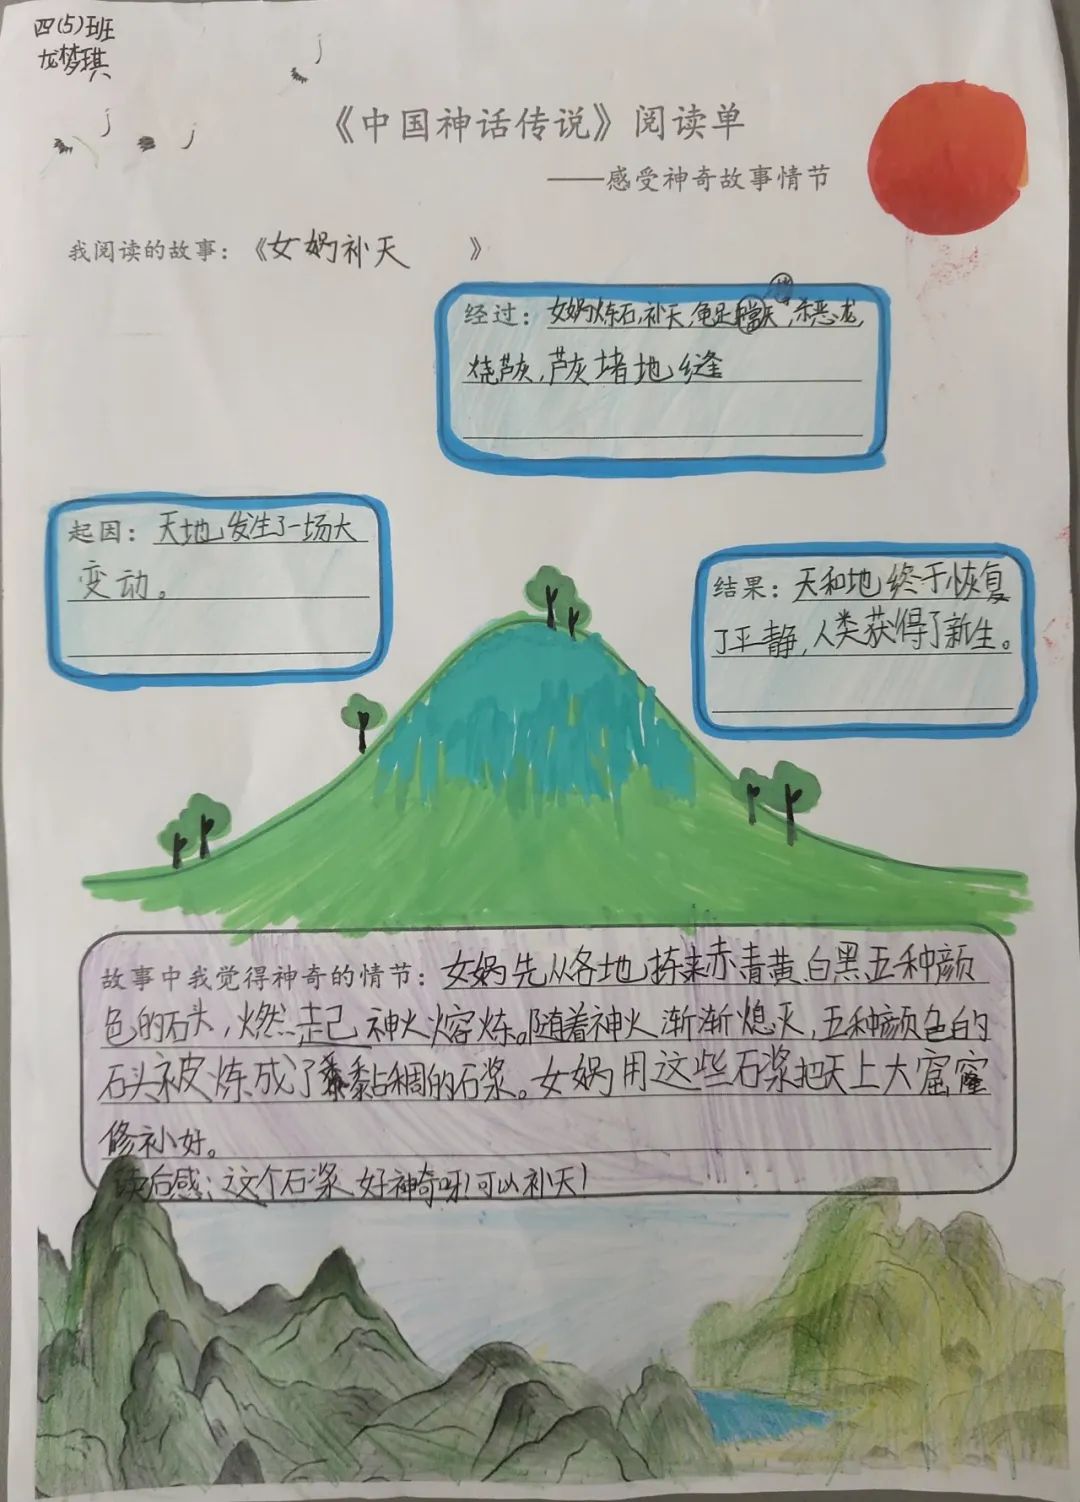 四(5)班
龙梦琪
《中国神话传说》阅读单
——感受神奇故事情节
我阅读的故事：《女娲补天 》
经过：女娲炼石补天,龟足撑天,杀恶龙,
烧芦灰,芦灰堵地缝
起因：天地发生了一场大
变动。
结果：天和地终于恢复
了平静,人类获得了新生。
故事中我觉得神奇的情节：女娲先从各地拣来赤青黄白黑五种颜
色的石头,燃起神火熔炼。随着神火渐渐熄灭,五种颜色的
石头被炼成了黏稠的石浆。女娲用这些石浆把天上大窟窿
修补好。
读后感:这个石浆好神奇呀!可以补天!